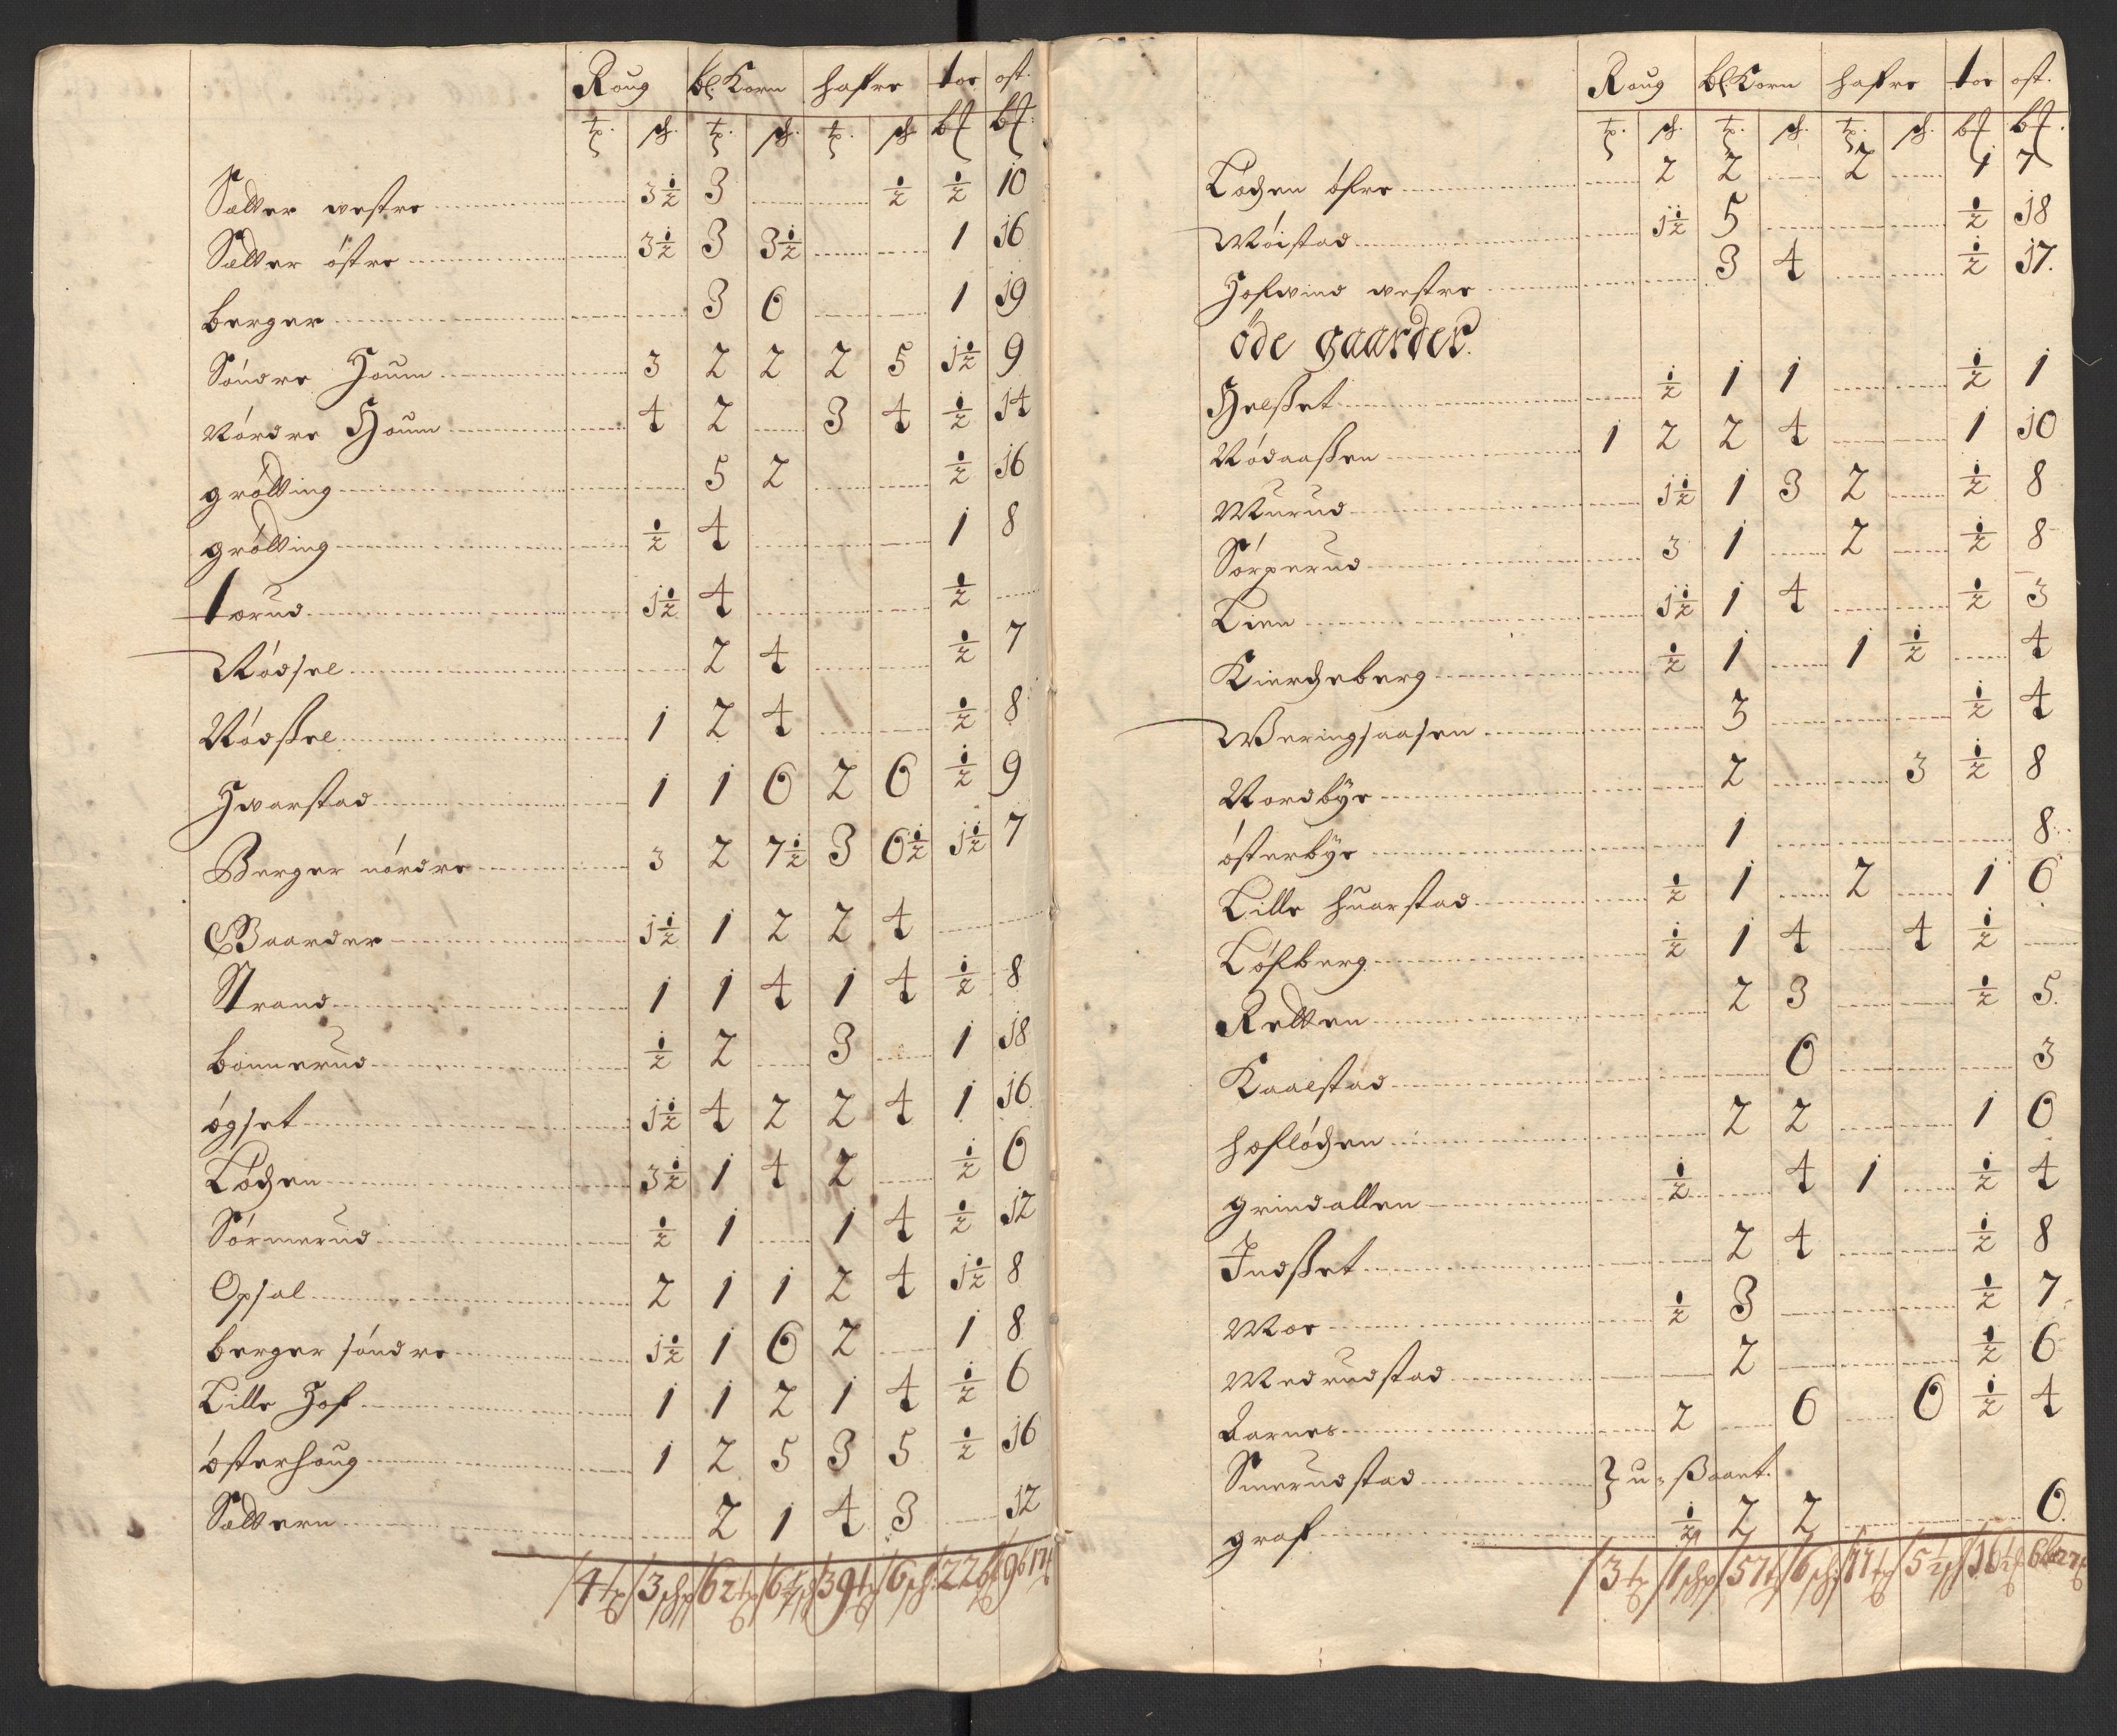 Roug bl. Korn hafre toe ost.
tp. sch. tp. sch. tp. sch. b℔ b℔.
Sætter westre 3½ 3 ½ ½ 10
Sætter östre 3½ 3 3½ 1 16
berger 3 6 1 19
Söndre Houm 3 2 2 2 5 1½ 9
Nórdre Houm 4 2 3 4 ½ 14
grótting 5 2 ½ 16
grótting ½ 4 1 8
torud 1½ 4 ½
Rödsel 2 4 ½ 7
Rödssel 1 2 4 ½ 8
Hwarstad 1 1 6 2 6 ½ 9
Berger nórdre 3 2 7½ 3 6½ 1½ 7
Gaarder 1½ 1 2 2 4
Strand 1 1 4 1 4 ½ 8
bonnerud ½ 2 3 1 18
ögset 1½ 4 2 2 4 1 16
Löchen 3½ 1 4 2 ½ 6
Sörmerud ½ 1 1 4 ½ 12
Opsal 2 1 1 2 4 1½ 8
berger söndre 1½ 1 6 2 1 8
Lille Hof 1 1 2 1 4 ½ 6
österhoug 1 2 5 3 5 ½ 16
Sættern 2 1 4 3 12
/4 tp /3 sch /62 tp /6½ sch /39 tp /6 sch /22 b℔
Roug bl. Korn hafre toe ost.
tp. sch. tp. sch. tp. sch. b℔ b℔.
Löchen öfre 2 2 2 1 7
Móistad 1½ 5 ½ 18
Hofwind westre 3 4 ½ 17.
öde gaarder.
Helsset ½ 1 1 ½ 1
Rödaassen 1 2 2 4 1 10
Murud 1½ 1 3 2 ½ 8
Sörperud 3 1 2 ½ 8
Lien 1½ 1 4 ½ 3
Kierckeberg ½ 1 1 ½ 4
Weringsaasen 3 ½ 4
Nordbye 2 3 ½ 8
österbye 1 8
Lille huarstad ½ 1 2 1 6
Löfberg ½ 1 4 4 ½
Retten 2 3 ½ 5.
Kaalstad 6 3
hoflöchen 2 2 1 6
grindallen ½ 4 1 ½ 4
Indsset 2 4 ½ 8
Moe ½ 3 ½ 7
Medrudstad 2 ½ 6
Aarnes 2 6 6 ½ 4
Smerudstad
graf ½ 2 2 6.
/3 tp /1 sch /57 tp /6 sch /11 tp /5½ sch /16½